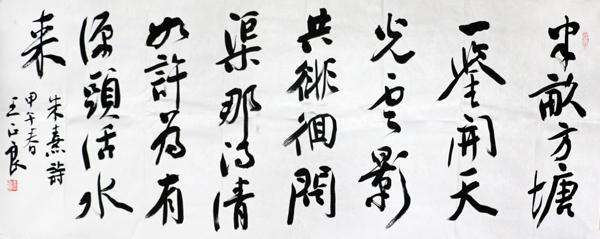 半畝方塘
一鑒開天
光雲影
共徘徊問
渠那得清
如許為有
源頭活水
来
朱熹詩
甲午春
王正良